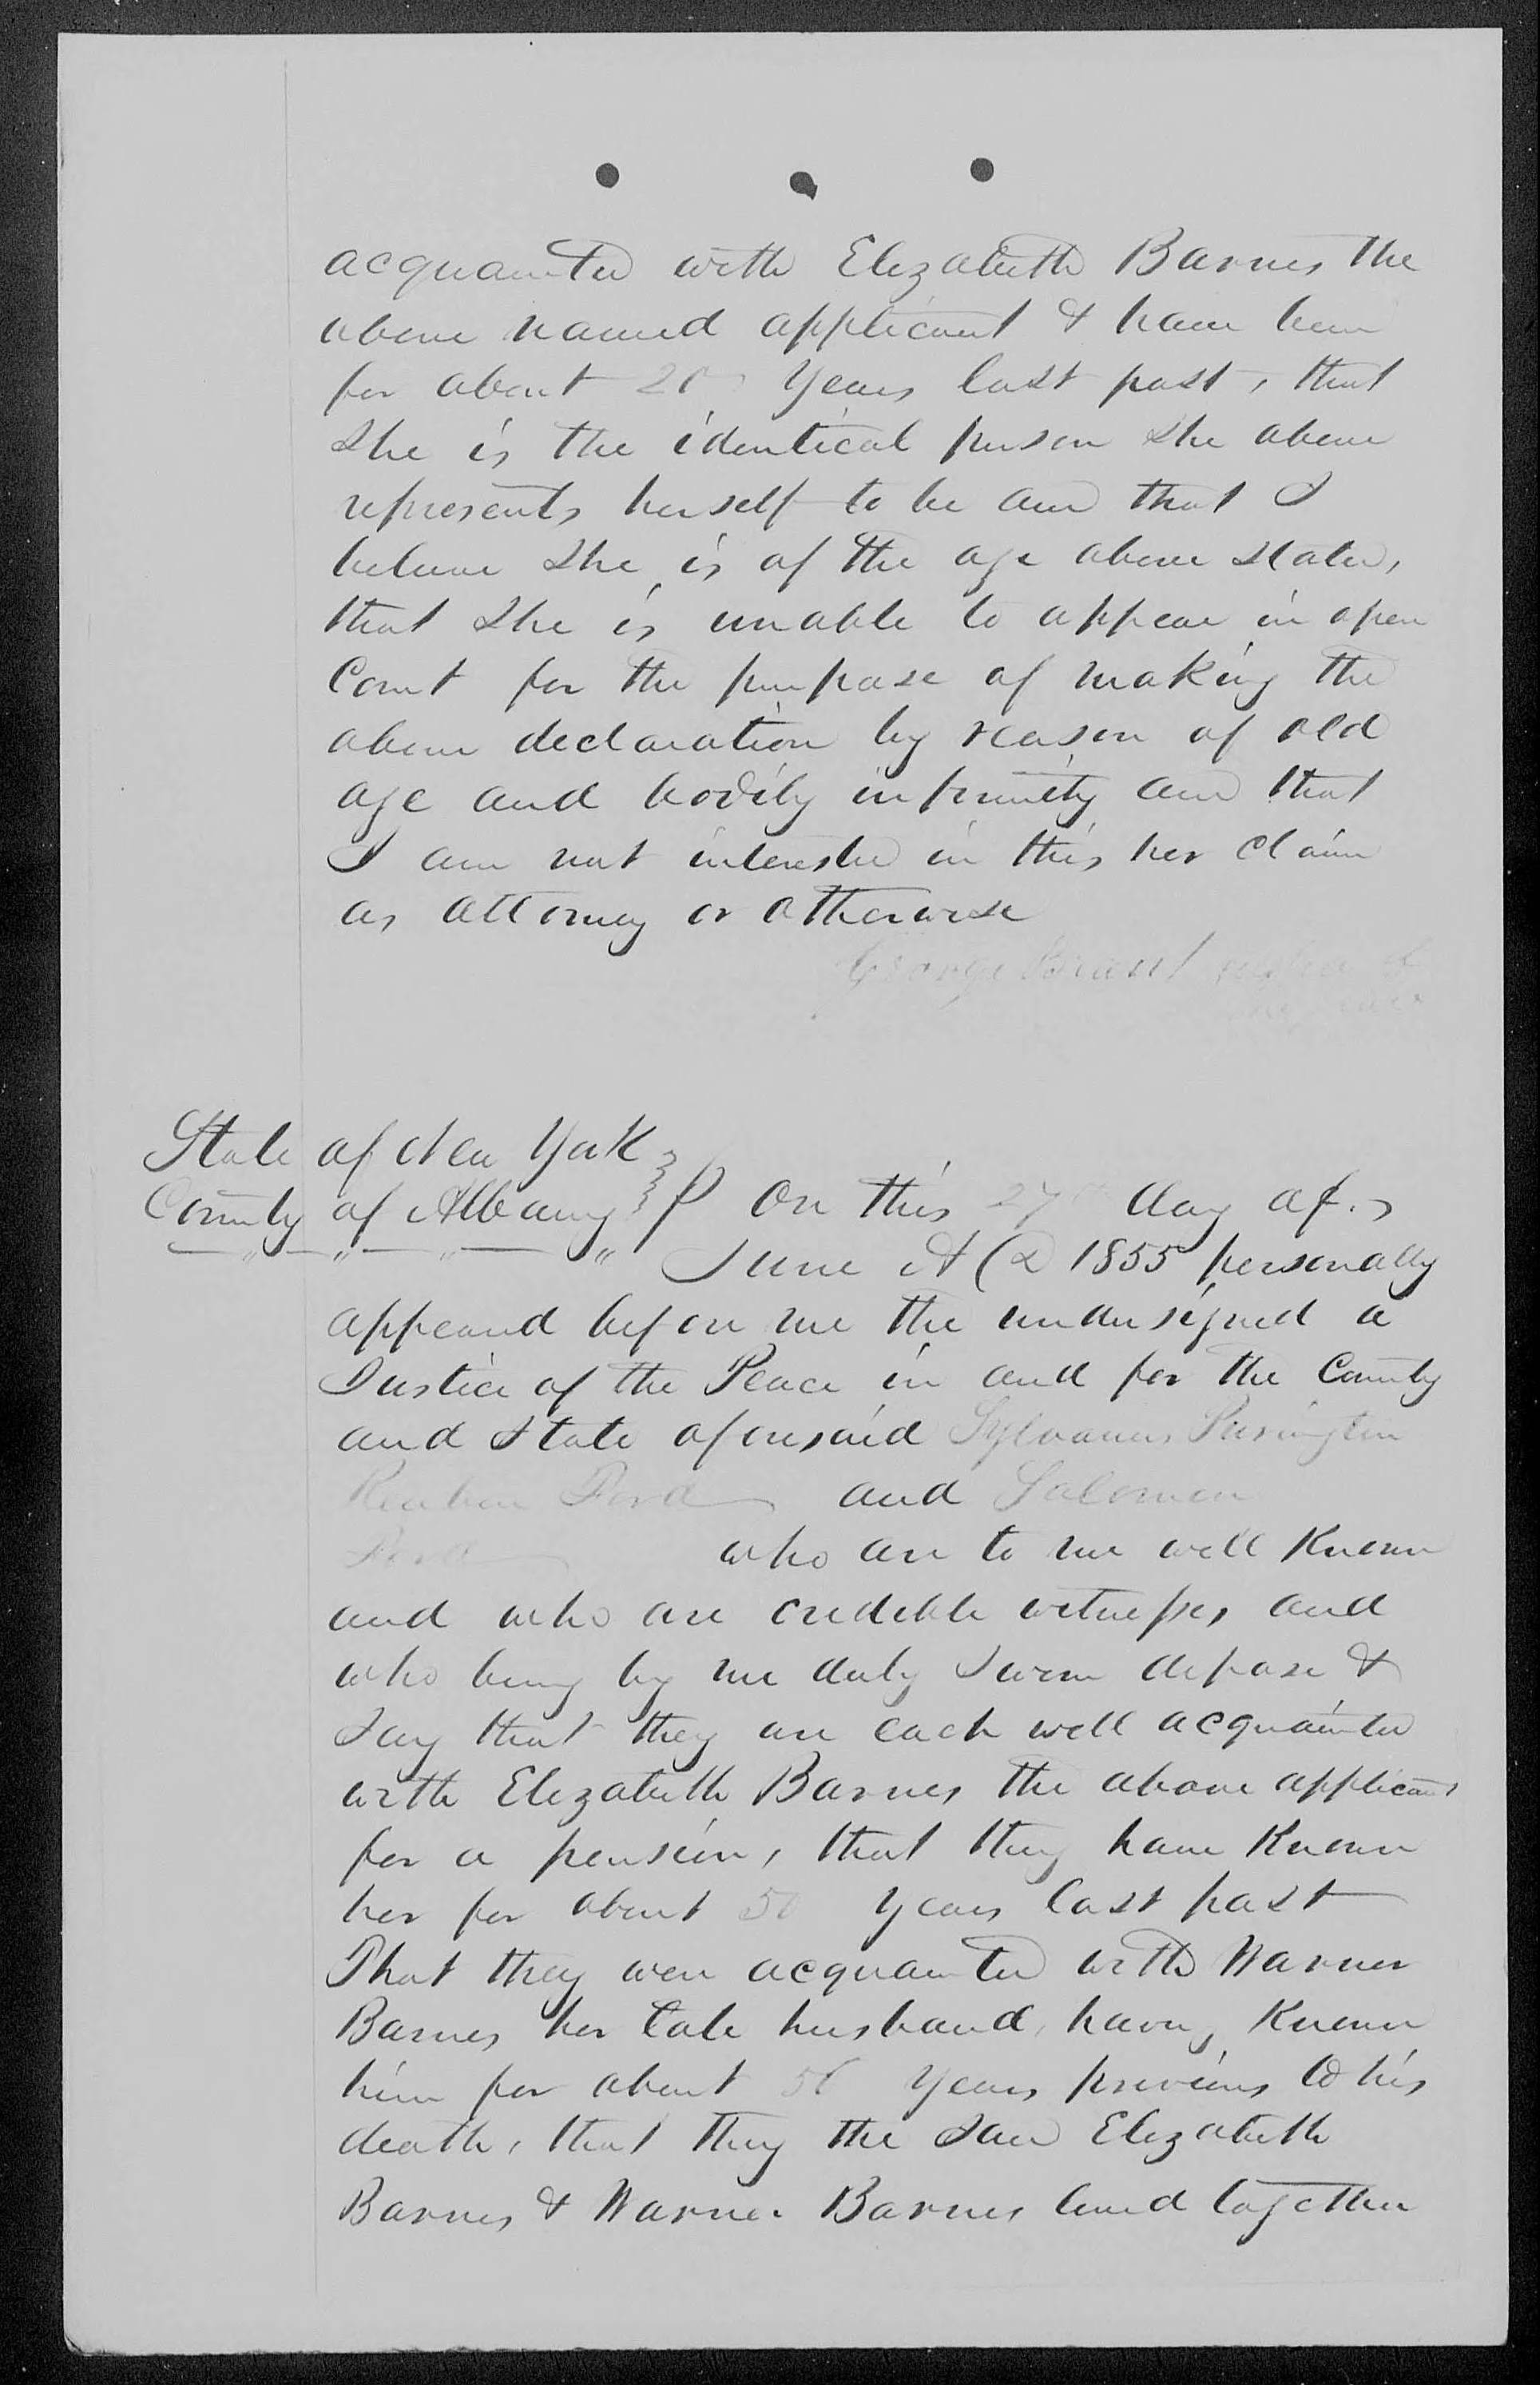 acquainted with Elizabeth Barnes the
above named applicant & have been
for about 20 years last past, that
she is the identical person she above
represents herself to be and that I
believe she is of the age above stated,
that she is unable to appear in open
Court for the purpose of making the
above declaration by reason of old
age and bodily infirmity and that
I am not interested in this her claim
as attorney or otherwise
George Brant Justice of
the peace
State of New York
County of Albany On this 27 day of
June A D 1855 personally
appeared before me the undersigned a
Justice of the Peace in and for the County
and State aforesaid Sylvanus Purington
Reuben Ford and Solomon
Ford who are to me well known
and who are credible witnesses and
who being by me duly sworn depose &
say that they are each well acquainted
with Elizabeth Barnes the above applicant
for a pension, that they have known
her for about 50 years last past
That they were acquainted with Warner
Barnes her late husband, having known
him for about 50 years previous to his
death, that they the said Elizabeth
Barnes & Warner Barnes lived together